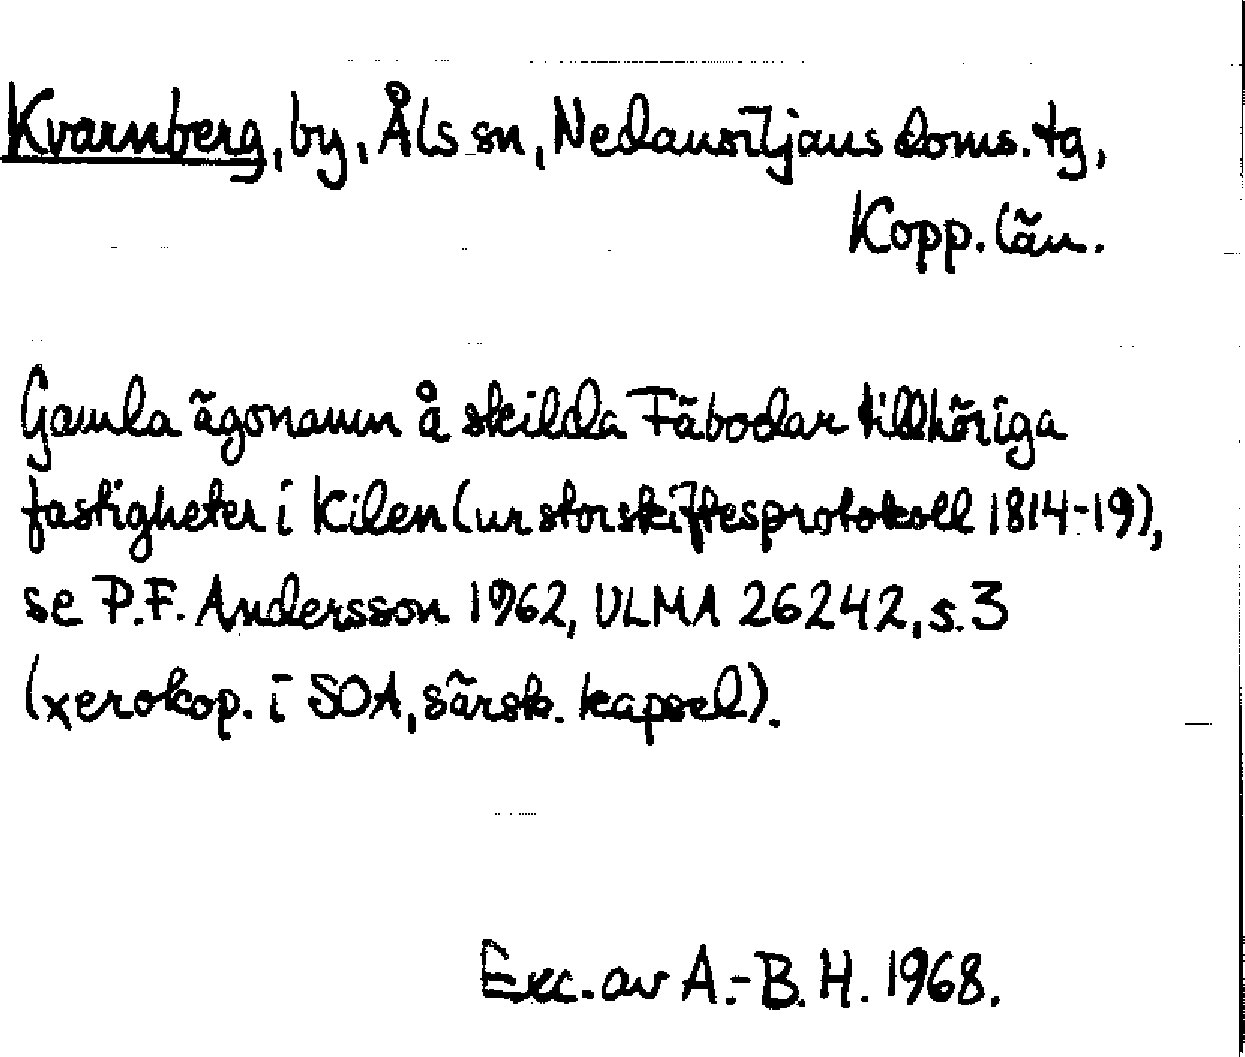 Kvarnberg, by, Åls sn, Nedansiljans doms. tg,
Kopp. län.
Gamla ägonamn å skilda Fäbodar tillhöriga
fastigheter i Kilen (ur storskiftesprotokoll 1814-19),
se P.F. Andersson 1962, ULMA 26242, s. 3
(xerokop. i SOA, särsk. kapsel).
Exc. av A.-B. H. 1968.